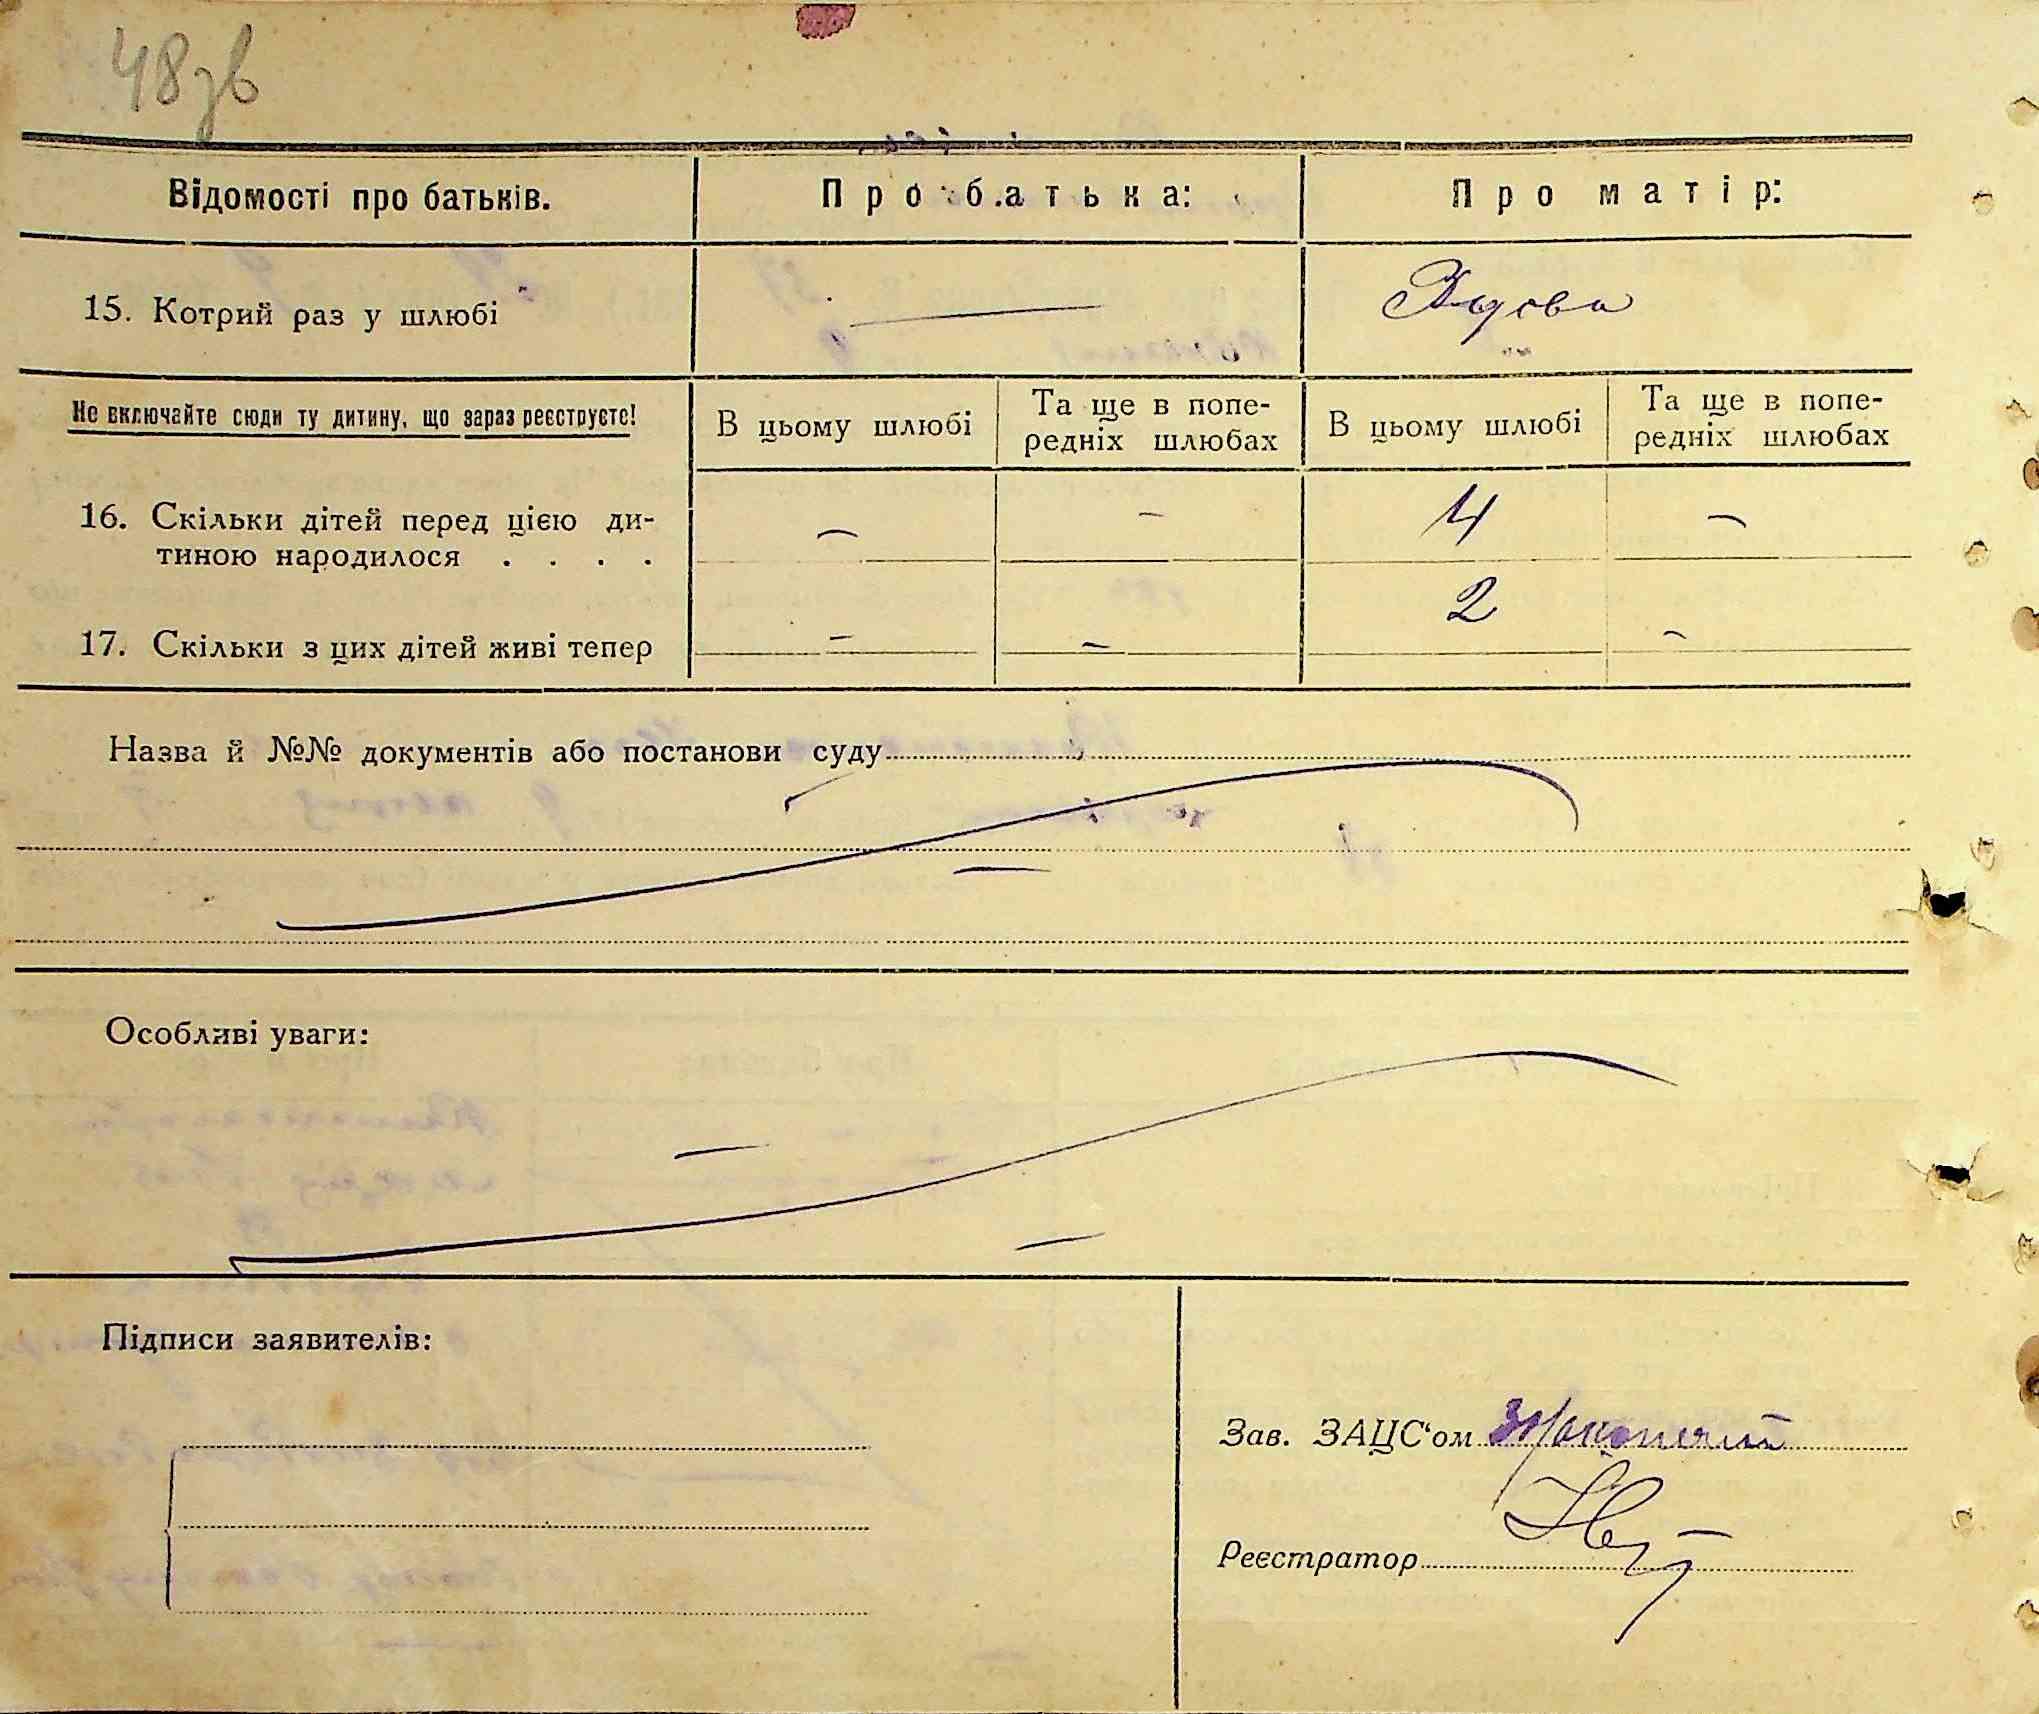 48зв
Відомості про батьків. Про батька: Про матір:
15. Котрий раз у шлюбі — Вдова
Не включайте сюди ту дитину, що зараз реєструєте!
В цьому шлюбі Та ще в попе-редніх шлюбах В цьому шлюбі Та ще в попе-редніх шлюбах
16. Скільки дітей перед цією ди-
тиною народилося . . . . — — 4 —
17. Скільки з цих дітей живі тепер — — 2 —
Назва й №№ документів або постанови суду
—
Особливі уваги:
—
—
Підписи заявителів:
Зав. ЗАЦС‘ом
Реєстратор